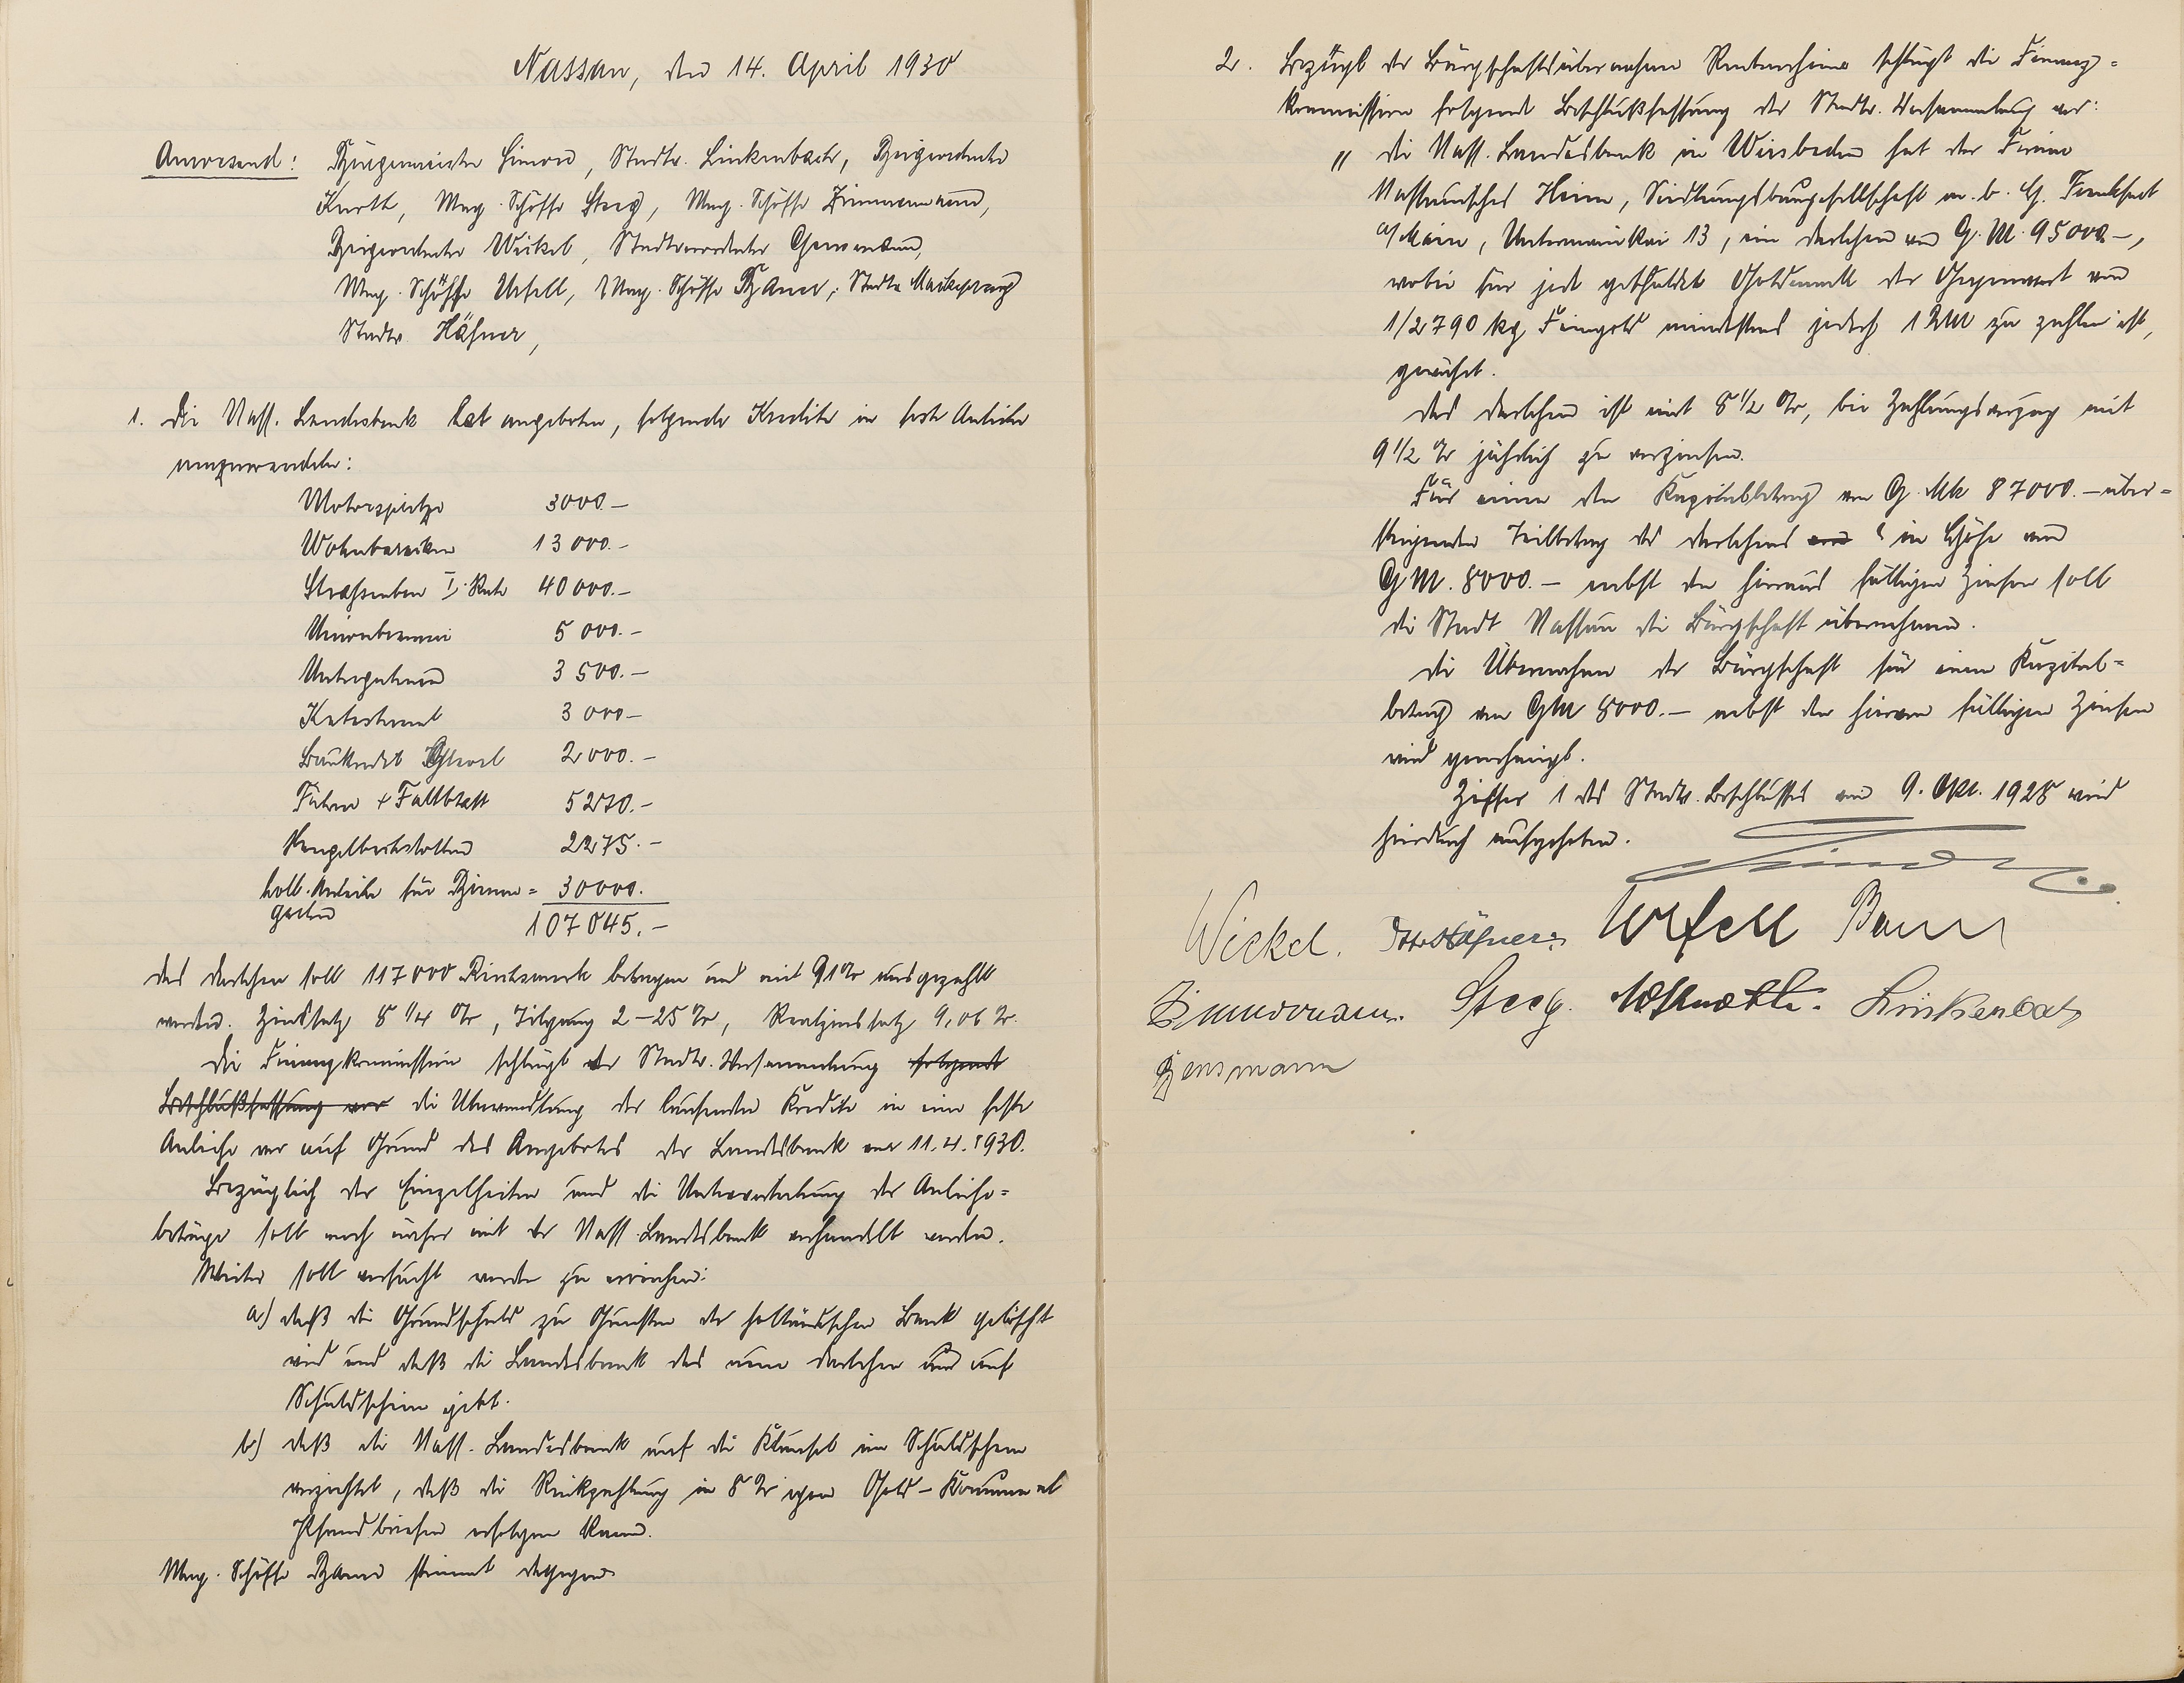 Nassau, den 14. April 1930
Anwesend: Bürgermeister Simon, Stadtv. Linkenbach, Beigeordneter
Knoth, Mag. Schöffe Steeg, Mag. Schöffe Zimmermann,
Beigeordneter Wickel, Stadtverordneter Gensmann,
Mag. Schöffe Urfell, Mag. Schöffe Bauer, Stadtv.
Stadtv. Häfner,
1. Die Nass. Landesbank hat angeboten, folgende Kredite in feste Anleihe
umzuwandeln:
Motorspritze 3000.—
Wohnbaracken 13 000.—
Strassenbau I. Rate 40 000.—
5 000.—
3 500.—
Katasteramt 3 000—
Baukredit 2000.—
5270.—
2275.—
holl. Anleihe für Birnen=
garten 30000.
107045.—
Das Darlehen soll 117000 Reichsmark betragen und mit 91% ausgezahlt
werden. Zinssatz 8 1/4 %, Tilgung 2–25 %, Realzinssatz 9,06 %.
Die Finanzkommission schlägt der Stadtv. Versammlung folgende
Beschlußfassung vor die Umwandlung der laufenden Kredite in eine feste
Anleihe vor auf Grund des Angebotes der Landesbank vom 11.4.1930.
Bezüglich der Einzelheiten und die Unterverteilung der Anleihe=
beträge soll noch näher mit der Nass. Landesbank verhandelt werden.
Weiter soll versucht werden zu erreichen:
a) daß die Grundschuld zu Gunsten der holländischen Bank gelöscht
wird und daß die Landesbank das neue Darlehen nur auf
Schuldschein gibt.
b) daß die Nass. Landesbank auf die Klausel im Schuldschein
verzichtet, daß die Rückzahlung in 8 % igen Gold-Kommunal
Pfandbriefen erfolgen kann.
Mag. Schöffe Bauer stimmt dagegen.
2. Bezügl. der Bürgschaftsübernahme Rentnerheim schlägt die Finanz=
kommission folgende Beschlußfassung der Stadtv. Versammlung vor:
" Die Nass. Landesbank in Wiesbaden hat der Firma
Nassauisches Heim, Siedlungsbaugesellschaft m. b. H. Frankfurt
a/Main, Untermainkai 13, ein Darlehen von G. M. 95000.—,
wobei für jede geschuldete Goldmark der Gegenwert von
1/2790 kg Feingold mindestens jedoch 1 RM zu zahlen ist,
gewährt.
Das Darlehen ist mit 8 1/2 %, bei Zahlungsverzug mit
9 1/2 % jährlich zu verzinsen.
Für einen den Kapitalbetrag von G. Mk 87000.— über=
steigenden Teilbetrag des Darlehens von in Höhe von
GM. 8000.— nebst den hieraus fälligen Zinsen soll
die Stadt Nassau die Bürgschaft übernehmen.
Die Übernahme der Bürgschaft für einen Kapital=
betrag von GM 8000.— nebst den hiervon fälligen Zinsen
wird genehmigt.
Ziffer 1 des Stadtv. Beschlusses vom 9. Okt. 1928 wird
hierdurch aufgehoben.
Simon
Wickel. Otto Häfner. Urfell Bauer
Zimmermann. Steeg. Knoth. Linkenbach
Gensmann